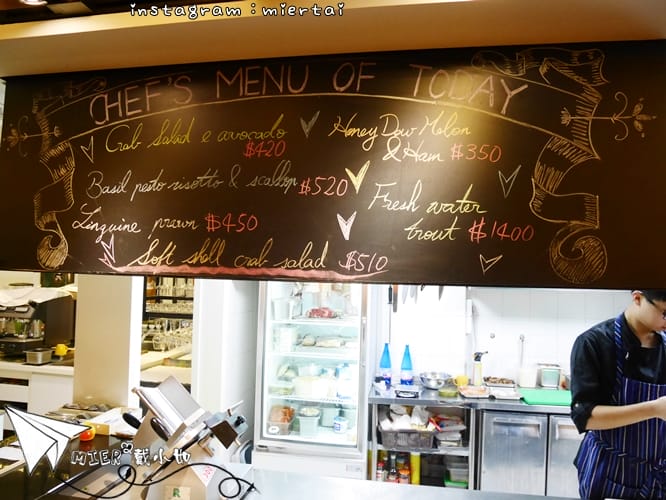 instagram：miertai
CHEF'S MENU OF TODAY
Crab Salad e avocado
$420
Basil pesto risotto & scallop $520
Linguine prawn $450
Soft shell crab salad $510
Honey Dow Melon
& Ham $350
Fresh water
trout $1400
MIER 戴小如
R